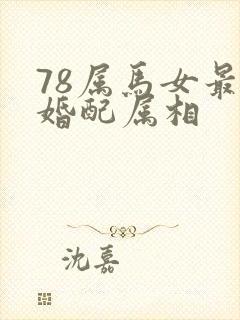 78属馬女最
婚配属相
沈嘉